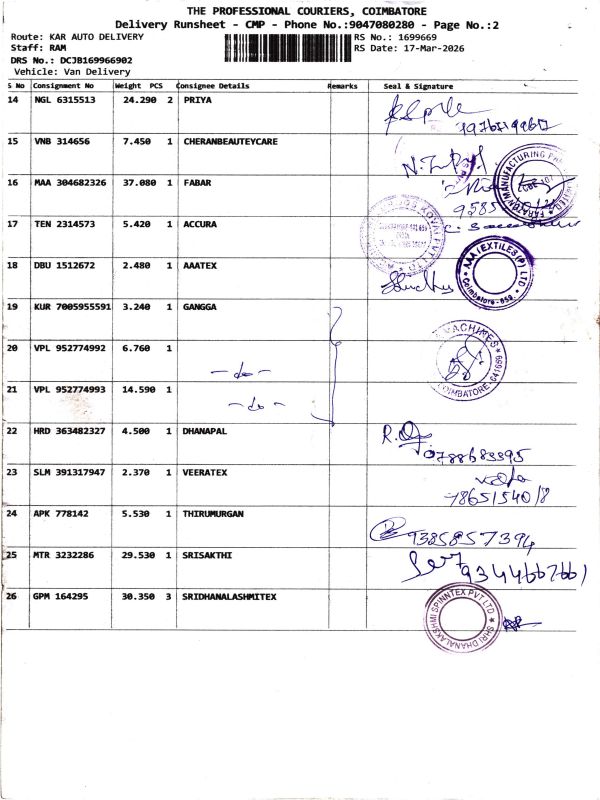 THE PROFESSIONAL COURIERS, COIMBATORE
Delivery Runsheet - CMP - Phone No.:9047080280 - Page No.:2
Route: KAR AUTO DELIVERY RS No.: 1699669
Staff: RAM RS Date: 17-Mar-2026
DRS No.: DCJB169966902
Vehicle: Van Delivery
S No Consignment No Weight PCS Consignee Details Remarks Seal & Signature
14 NGL 6315513 24.290 2 PRIYA
15 VNB 314656 7.450 1 CHERANBEAUTEYCARE
16 MAA 304682326 37.080 1 FABAR
17 TEN 2314573 5.420 1 ACCURA
18 DBU 1512672 2.480 1 AAATEX
AAA TEXTILES (P) LTD
Coimbatore-659.
19 KUR 7005955591 3.240 1 GANGGA
MACHINES
COIMBATORE 641659
20 VPL 952774992 6.760 1
-do-
21 VPL 952774993 14.590 1
-do-
22 HRD 363482327 4.500 1 DHANAPAL
23 SLM 391317947 2.370 1 VEERATEX
24 APK 778142 5.530 1 THIRUMURGAN
9385857394
25 MTR 3232286 29.530 1 SRISAKTHI
26 GPM 164295 30.350 3 SRIDHANALASHMITEX
SHRI DHANALAKSHMI SPINNTEX PVT LTD